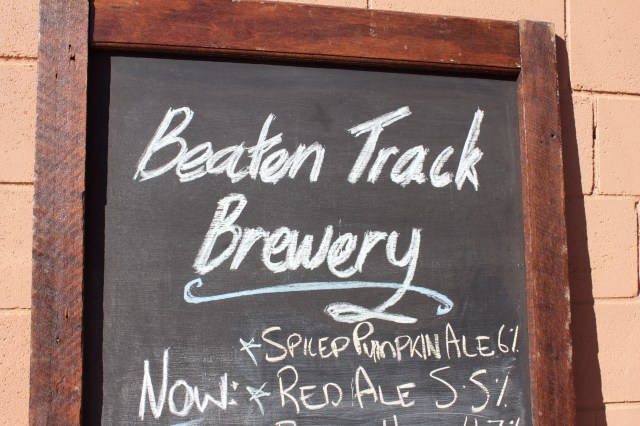 Beaten Track
Brewery
* SPICED PUMPKIN ALE 6%
NOW: * RED ALE 5.5%